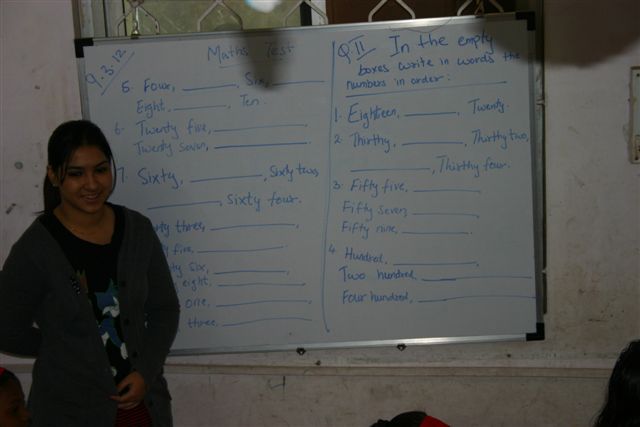 9.3.12
Maths Test
5. Four, ________, Six, ________
Eight, ________, Ten.
6. Twenty five, ________
Twenty seven, ________
7. Sixty, ________, Sixty two,
________, sixty four.
three, ________,
five, ________
six, ________,
eight, ________,
one, ________,
three, ________
Q II In the empty
boxes write in words the
numbers in order:
1. Eighteen, ________, Twenty.
2. Thirthy, ________, Thirthy two,
________, Thirthy four.
3. Fifty five, ________,
Fifty seven, ________,
Fifty nine, ________.
4. Hundred, ________,
Two hundred, ________,
Four hundred, ________